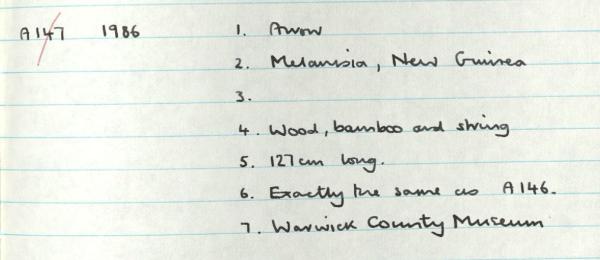 A147 1986 1. Arrow
2. Melanisia, New Guinea
3.
4. Wood, bamboo and string
5. 127cm long.
6. Exactly the same as A146.
7. Warwick County Museum